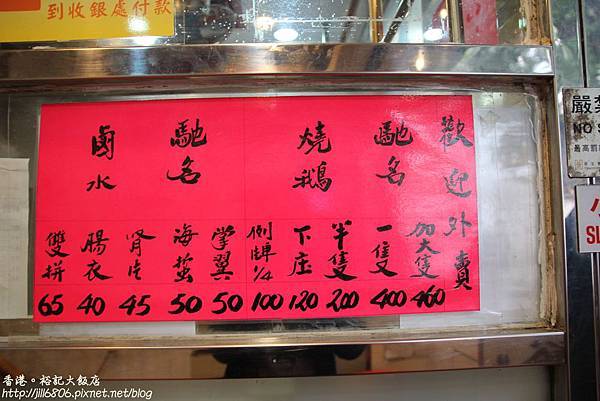 到收銀處付款
歡迎外賣
馳名
燒鵝
加大隻 460
一隻 400
半隻 200
下庄 120
側脾 1/4 100
馳名
鹵水
掌翼 50
海蜇 50
腎片 45
腸衣 40
雙拼 65
嚴禁
NO S
最高罰
小
SL
香港。裕記大飯店
http://jill6806.pixnet.net/blog